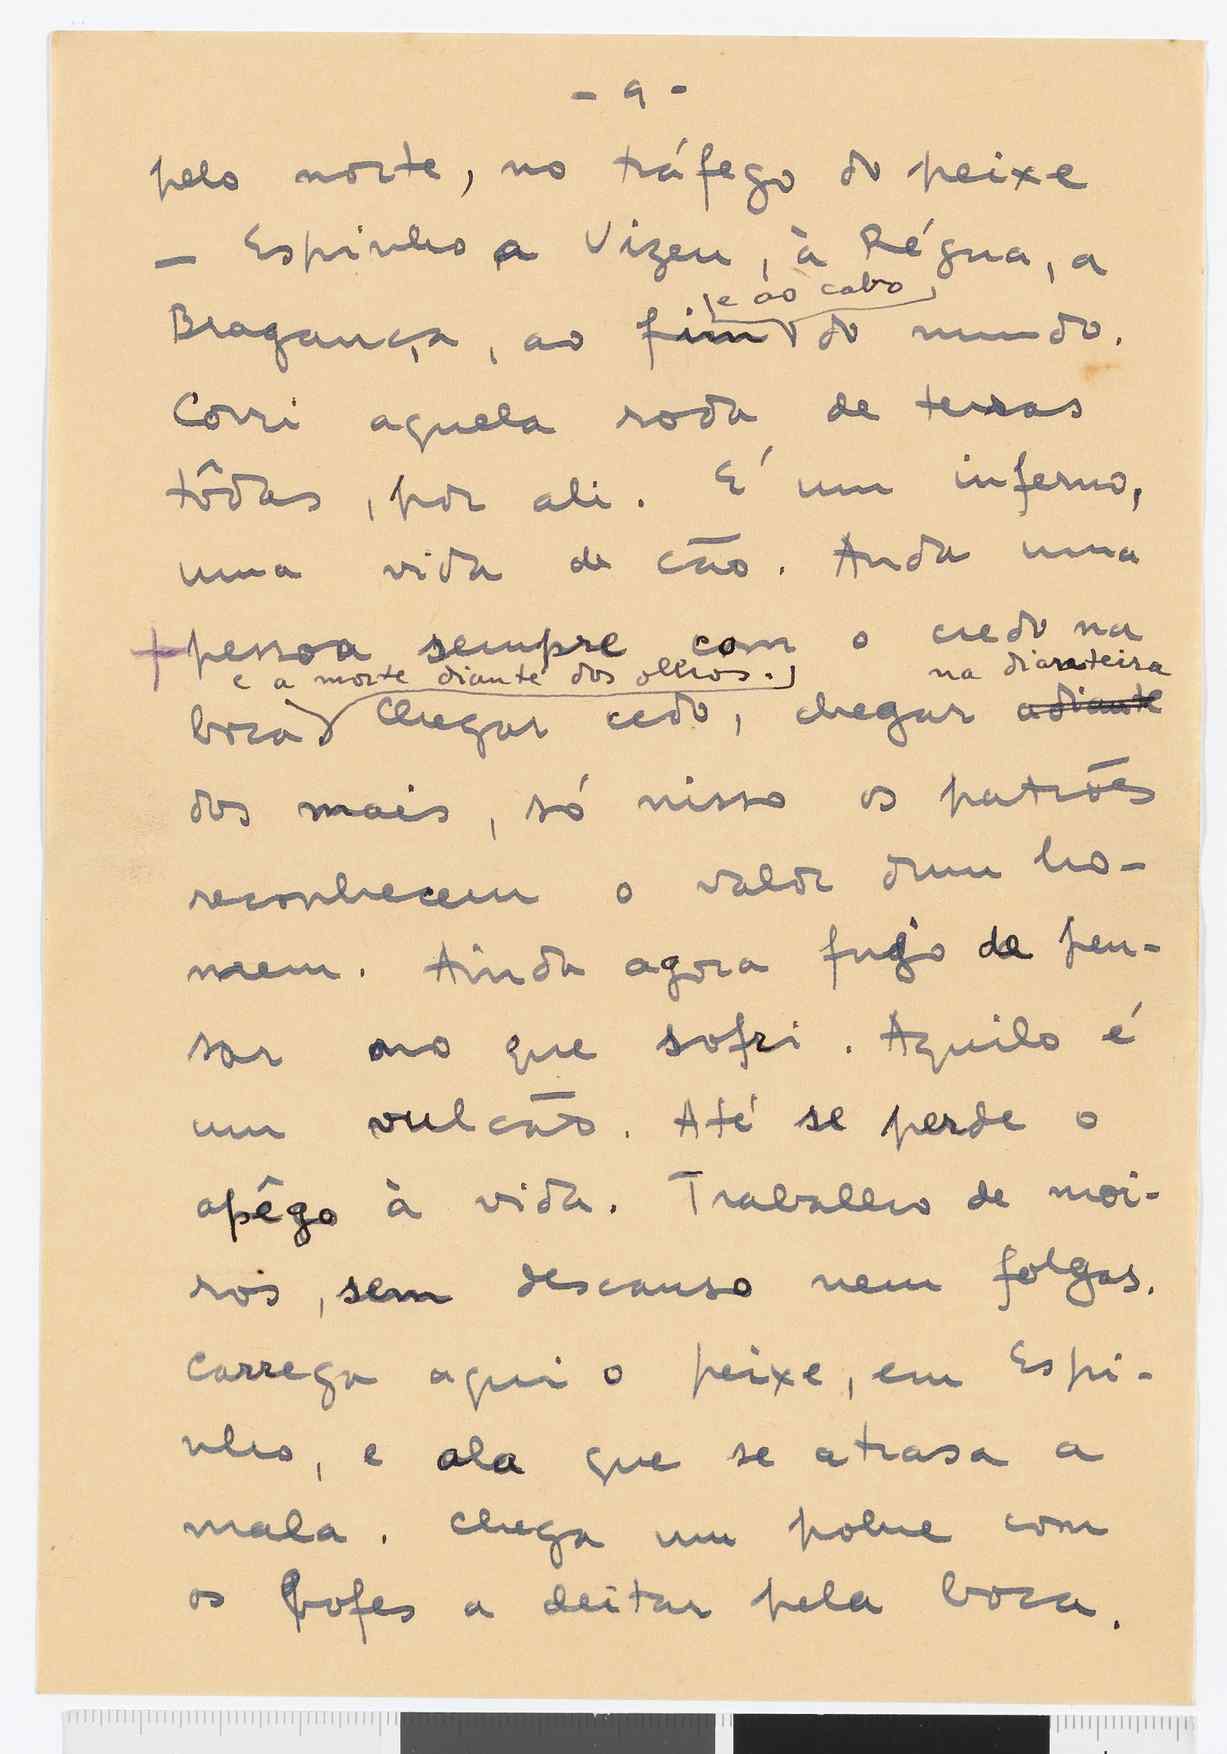 - 9 -
pelo norte, no tráfego do peixe
- Espinho a Vizeu, à Régua, a
e ao cabo
Bragança, ao fim do mundo.
Corri aquela roda de terras
tôdas, por ali. É um inferno,
uma vida de cão. Anda uma
+ pessoa sempre com o credo na
e a morte diante dos olhos. na dianteira
boca Chegar cedo, chegar adiante
dos mais, só nisso os patrões
reconhecem o valor dum ho-
mem. Ainda agora fujo de pen-
sar no que sofri. Aquilo é
um vulcão. Até se perde o
apêgo à vida. Trabalho de moi-
ros, sem descanso nem folgas.
Carrega aqui o peixe, em Espi-
nho, e ala que se atrasa a
mala. Chega um pobre com
os bofes a deitar pela boca.